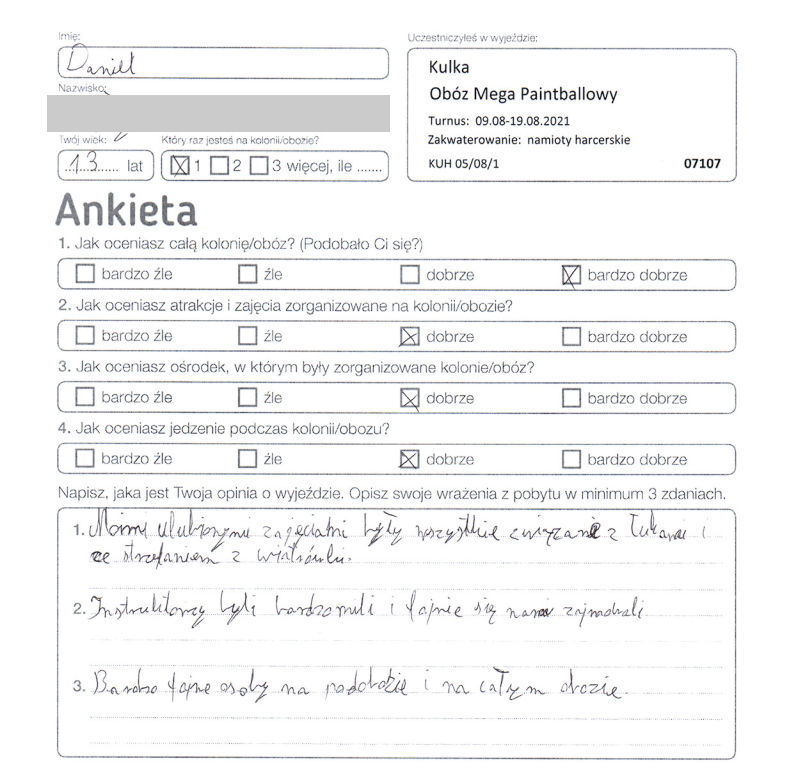 Imię:
Daniel
Uczestniczyłeś w wyjeździe:
Kulka
Obóz Mega Paintballowy
Turnus: 09.08-19.08.2021
Zakwaterowanie: namioty harcerskie
KUH 05/08/1 07107
Nazwisko:
Twój wiek:
13 lat
Który raz jesteś na kolonii/obozie?
1 2 3 więcej, ile .......
Ankieta
1. Jak oceniasz całą kolonię/obóz? (Podobało Ci się?)
bardzo źle źle dobrze bardzo dobrze
2. Jak oceniasz atrakcje i zajęcia zorganizowane na kolonii/obozie?
bardzo źle źle dobrze bardzo dobrze
3. Jak oceniasz ośrodek, w którym były zorganizowane kolonie/obóz?
bardzo źle źle dobrze bardzo dobrze
4. Jak oceniasz jedzenie podczas kolonii/obozu?
bardzo źle źle dobrze bardzo dobrze
Napisz, jaka jest Twoja opinia o wyjeździe. Opisz swoje wrażenia z pobytu w minimum 3 zdaniach.
1. Moimi ulubionymi zajęciami były wszystkie związane z łukami i
ze strzelaniem z wiatrówki.
2. Instruktorzy byli bardzo mili i fajnie się nami zajmowali
3. Bardzo fajne osoby na podobozie i na całym obozie.